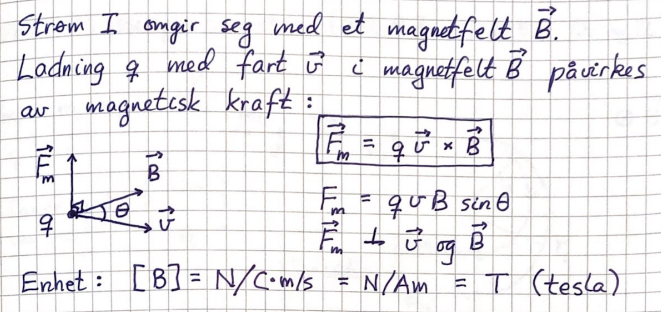 Strøm I omgir seg med et magnetfelt B⃗.
Ladning q med fart v⃗ i magnetfelt B⃗ påvirkes
av magnetisk kraft :
F⃗ₘ = q v⃗ × B⃗
F⃗ₘ
B⃗
θ
q
v⃗
Fₘ = q v B sin θ
F⃗ₘ ⊥ v⃗ og B⃗
Enhet : [B] = N/C·m/s = N/Am = T (tesla)